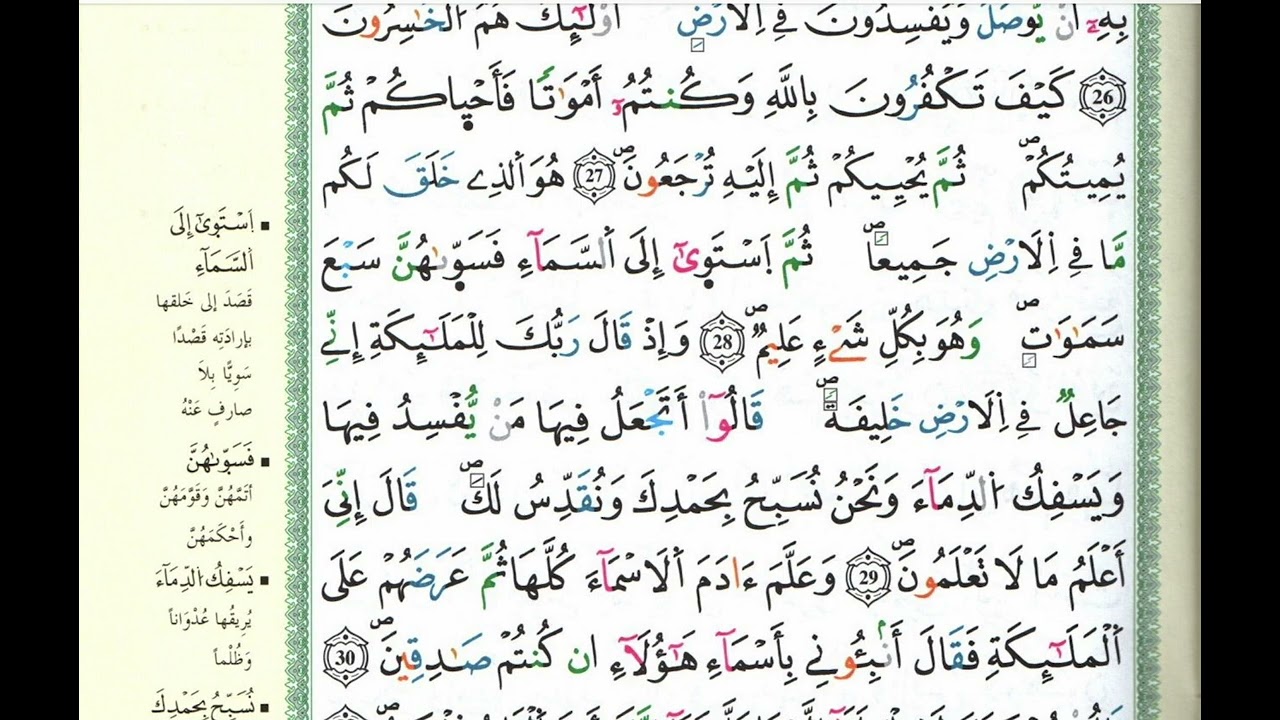 بِهِۦٓ أَنْ يُّوصَلَ وَيُفْسِدُونَ فِي اِلَارْضِ أُوْلَٰٓئِكَ هُمُ اُلْخَٰسِرُونَ
26 كَيْفَ تَكْفُرُونَ بِاللَّهِ وَكُنتُمُۥٓ أَمْوَٰتاٗ فَأَحْيٰاكُمْ ثُمَّ
يُمِيتُكُمْ ثُمَّ يُحْيِيكُمْ ثُمَّ إِلَيْهِ تُرْجَعُونَ 27 هُوَ اَلذِے خَلَقَ لَكُم
مَّا فِي اِلَارْضِ جَمِيعاٗ ثُمَّ اَسْتَوٰىٓ إِلَى اَلسَّمَآءِ فَسَوّٰىٰهُنَّ سَبْعَ
سَمَٰوَٰتٖ وَهُوَ بِكُلِّ شَےْءٍ عَلِيمٞ 28 وَإِذْ قَالَ رَبُّكَ لِلْمَلَٰٓئِكَةِ إِنِّے
جَاعِلٞ فِي اِلَارْضِ خَلِيفَةٗ قَالُوٓاْ أَتَجْعَلُ فِيهَا مَنْ يُّفْسِدُ فِيهَا
وَيَسْفِكُ اُلدِّمَآءَ وَنَحْنُ نُسَبِّحُ بِحَمْدِكَ وَنُقَدِّسُ لَكَ قَالَ إِنِّيَ
أَعْلَمُ مَا لَا تَعْلَمُونَ 29 وَعَلَّمَ ءَادَمَ اَلَاسْمَآءَ كُلَّهَا ثُمَّ عَرَضَهُمْ عَلَى
اَلْمَلَٰٓئِكَةِ فَقَالَ أَنۢبِـُٔونِي بِأَسْمَآءِ هَٰٓؤُلَآءِ ان كُنتُمْ صَٰدِقِينَ 30
اَسْتَوٰىٓ إِلَى
اَلسَّمَآءِ
قَصَدَ إلى خَلقها
بإرادَتِه قَصْدًا
سَوِيًّا بِلاَ
صارفٍ عَنْهُ
فَسَوّٰىٰهُنَّ
أتَمَّهُنَّ وَقَوَّمَهُنَّ
وأَحْكَمَهُنَّ
يَسْفِكُ اُلدِّمَآءَ
يُرِيقُها عُدْوَاناً
وَظُلْماً
نُسَبِّحُ بِحَمْدِكَ